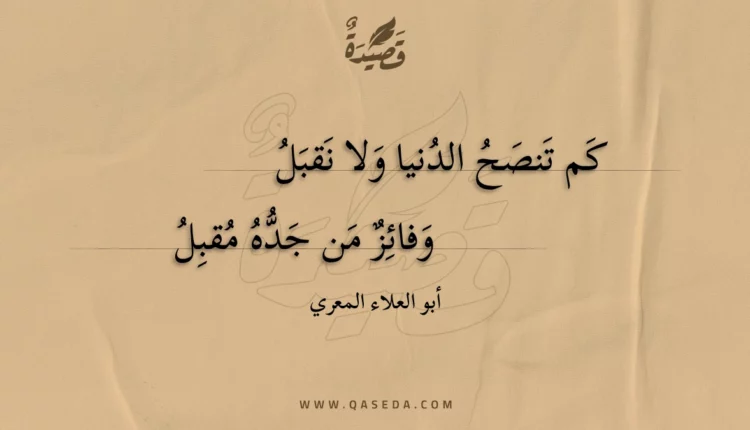 قَصِيْدَةٌ
كَم تَنصَحُ الدُنيا وَلا نَقبَلُ
وَفائِزٌ مَن جَدُّهُ مُقبِلُ
أبو العلاء المعري
WWW.QASEDA.COM